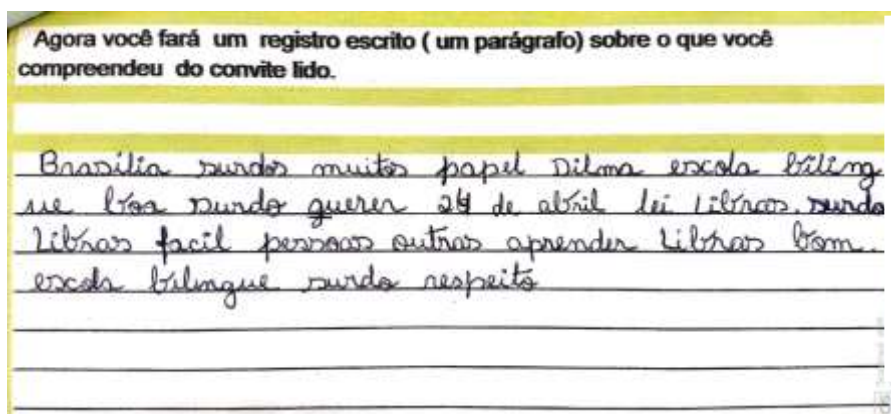 Agora você fará um registro escrito ( um parágrafo) sobre o que você
compreendeu do convite lido.
Brasília surdos muitos papel Dilma escola biling
ue boa surdo querer 24 de abril lei Libras. surdo
Libras facil pessoas outras aprender Libras bom.
escola bilingue surdo respeito